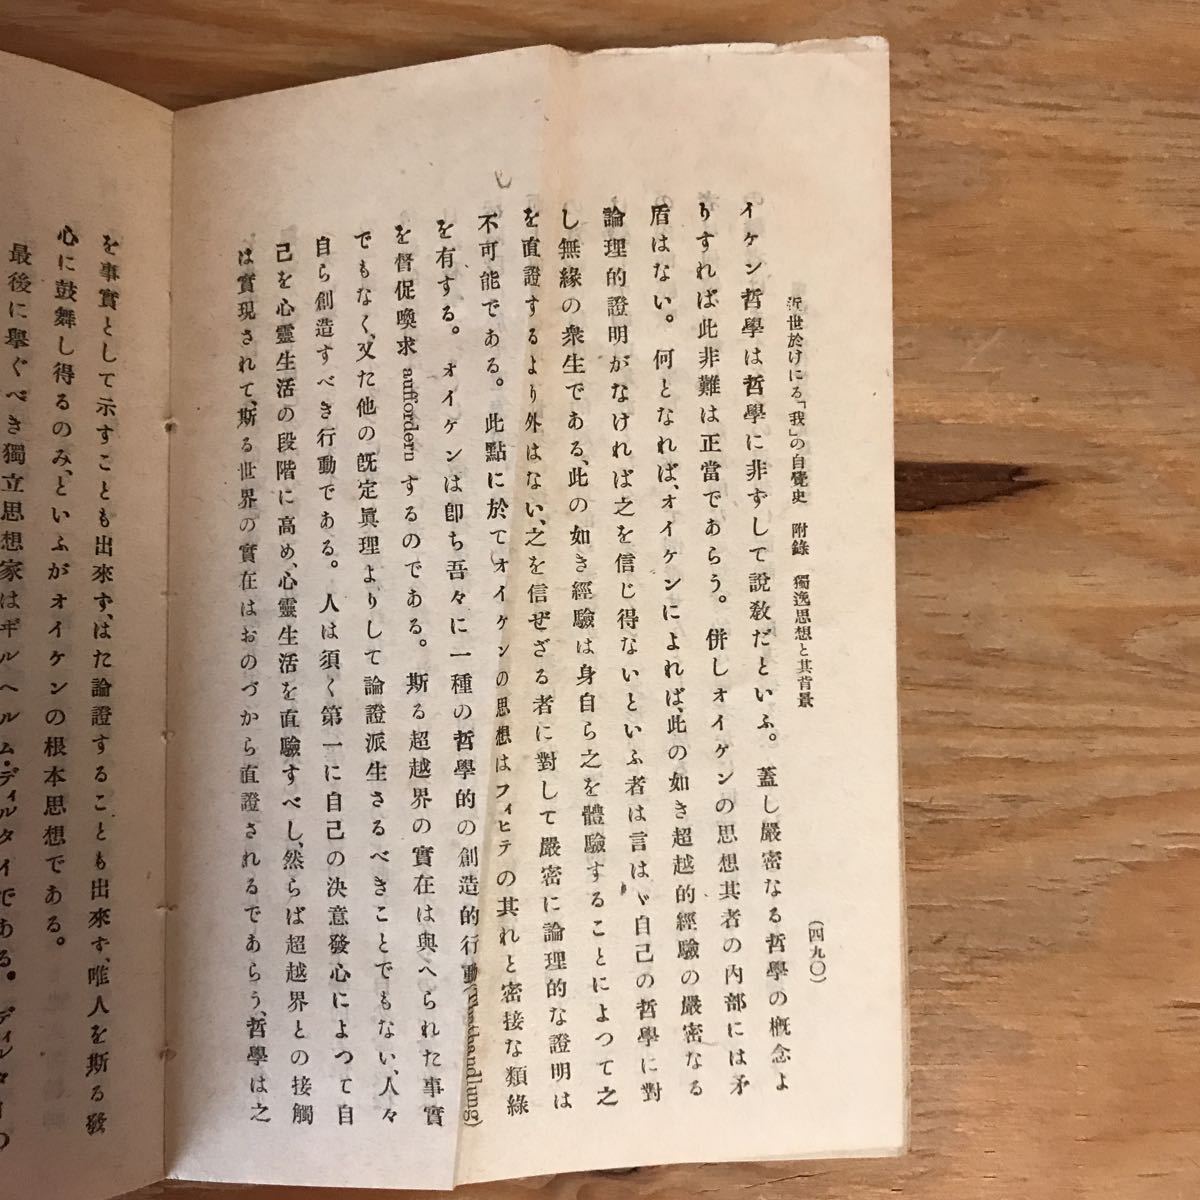 近世於けにる「我」の自覺史　附錄　獨逸思想と其背景
(四九〇)
イケン哲學は哲學に非ずして說敎だといふ。蓋し嚴密なる哲學の槪念よ
りすれば此非難は正當であらう。併しオイケンの思想其者の內部には矛
盾はない。何となれば、オイケンによれば、此の如き超越的經驗の嚴密なる
論理的證明がなければ之を信じ得ないといふ者は言はゞ自己の哲學に對
し無緣の衆生である、此の如き經驗は身自ら之を體驗することによつて之
を直證するより外はない、之を信ぜざる者に對して嚴密に論理的な證明は
不可能である。此點に於てオイケンの思想はフィヒテの其れと密接な類緣
を有する。オイケンは卽ち吾々に一種の哲學的の創造的行動(Thathandlung)
を督促喚求 auffordern するのである。斯る超越界の實在は與へられた事實
でもなく、又た他の旣定眞理よりして論證派生さるべきことでもない、人々
自ら創造すべき行動である。人は須く第一に自己の決意發心によつて自
己を心靈生活の段階に高め、心靈生活を直驗すべし、然らば超越界との接觸
は實現されて、斯る世界の實在はおのづから直證されるであらう、哲學は之
を事實として示すことも出來ず、はた論證することも出來ず、唯人を斯る發
心に鼓舞し得るのみ、といふがオイケンの根本思想である。
最後に擧ぐべき獨立思想家はギルヘルム・ディルタイである。ディルタ